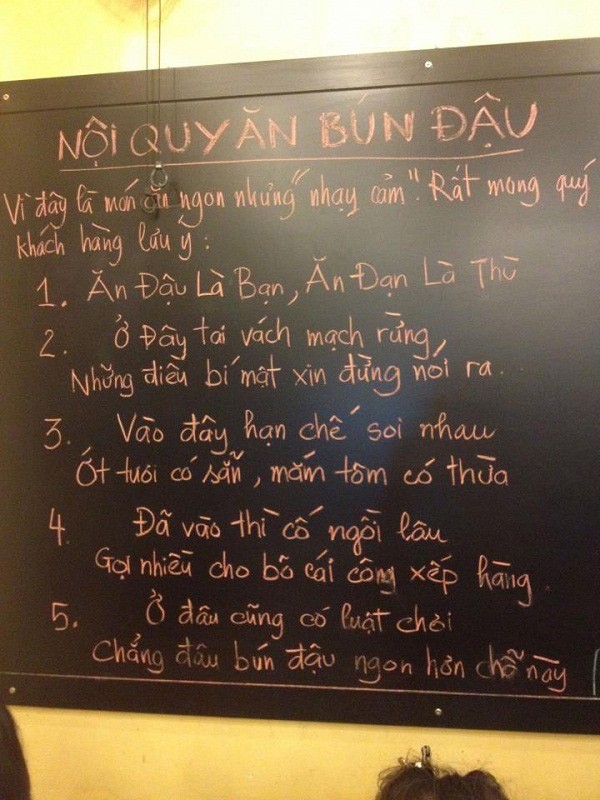 NỘI QUY ĂN BÚN ĐẬU
Vì đây là món ăn ngon nhưng "nhạy cảm". Rất mong quý
khách hàng lưu ý :
1. Ăn Đậu Là Bạn, Ăn Đạn Là Thù
2. Ở Đây tai vách mạch rừng,
Những điều bí mật xin đừng nói ra..
3. Vào đây hạn chế soi nhau
Ớt tươi có sẵn, mắm tôm có thừa
4 Đã vào thì cố ngồi lâu
Gọi nhiều cho bõ cái công xếp hàng.
5. Ở đâu cũng có luật chơi
Chẳng đâu bún đậu ngon hơn chỗ này